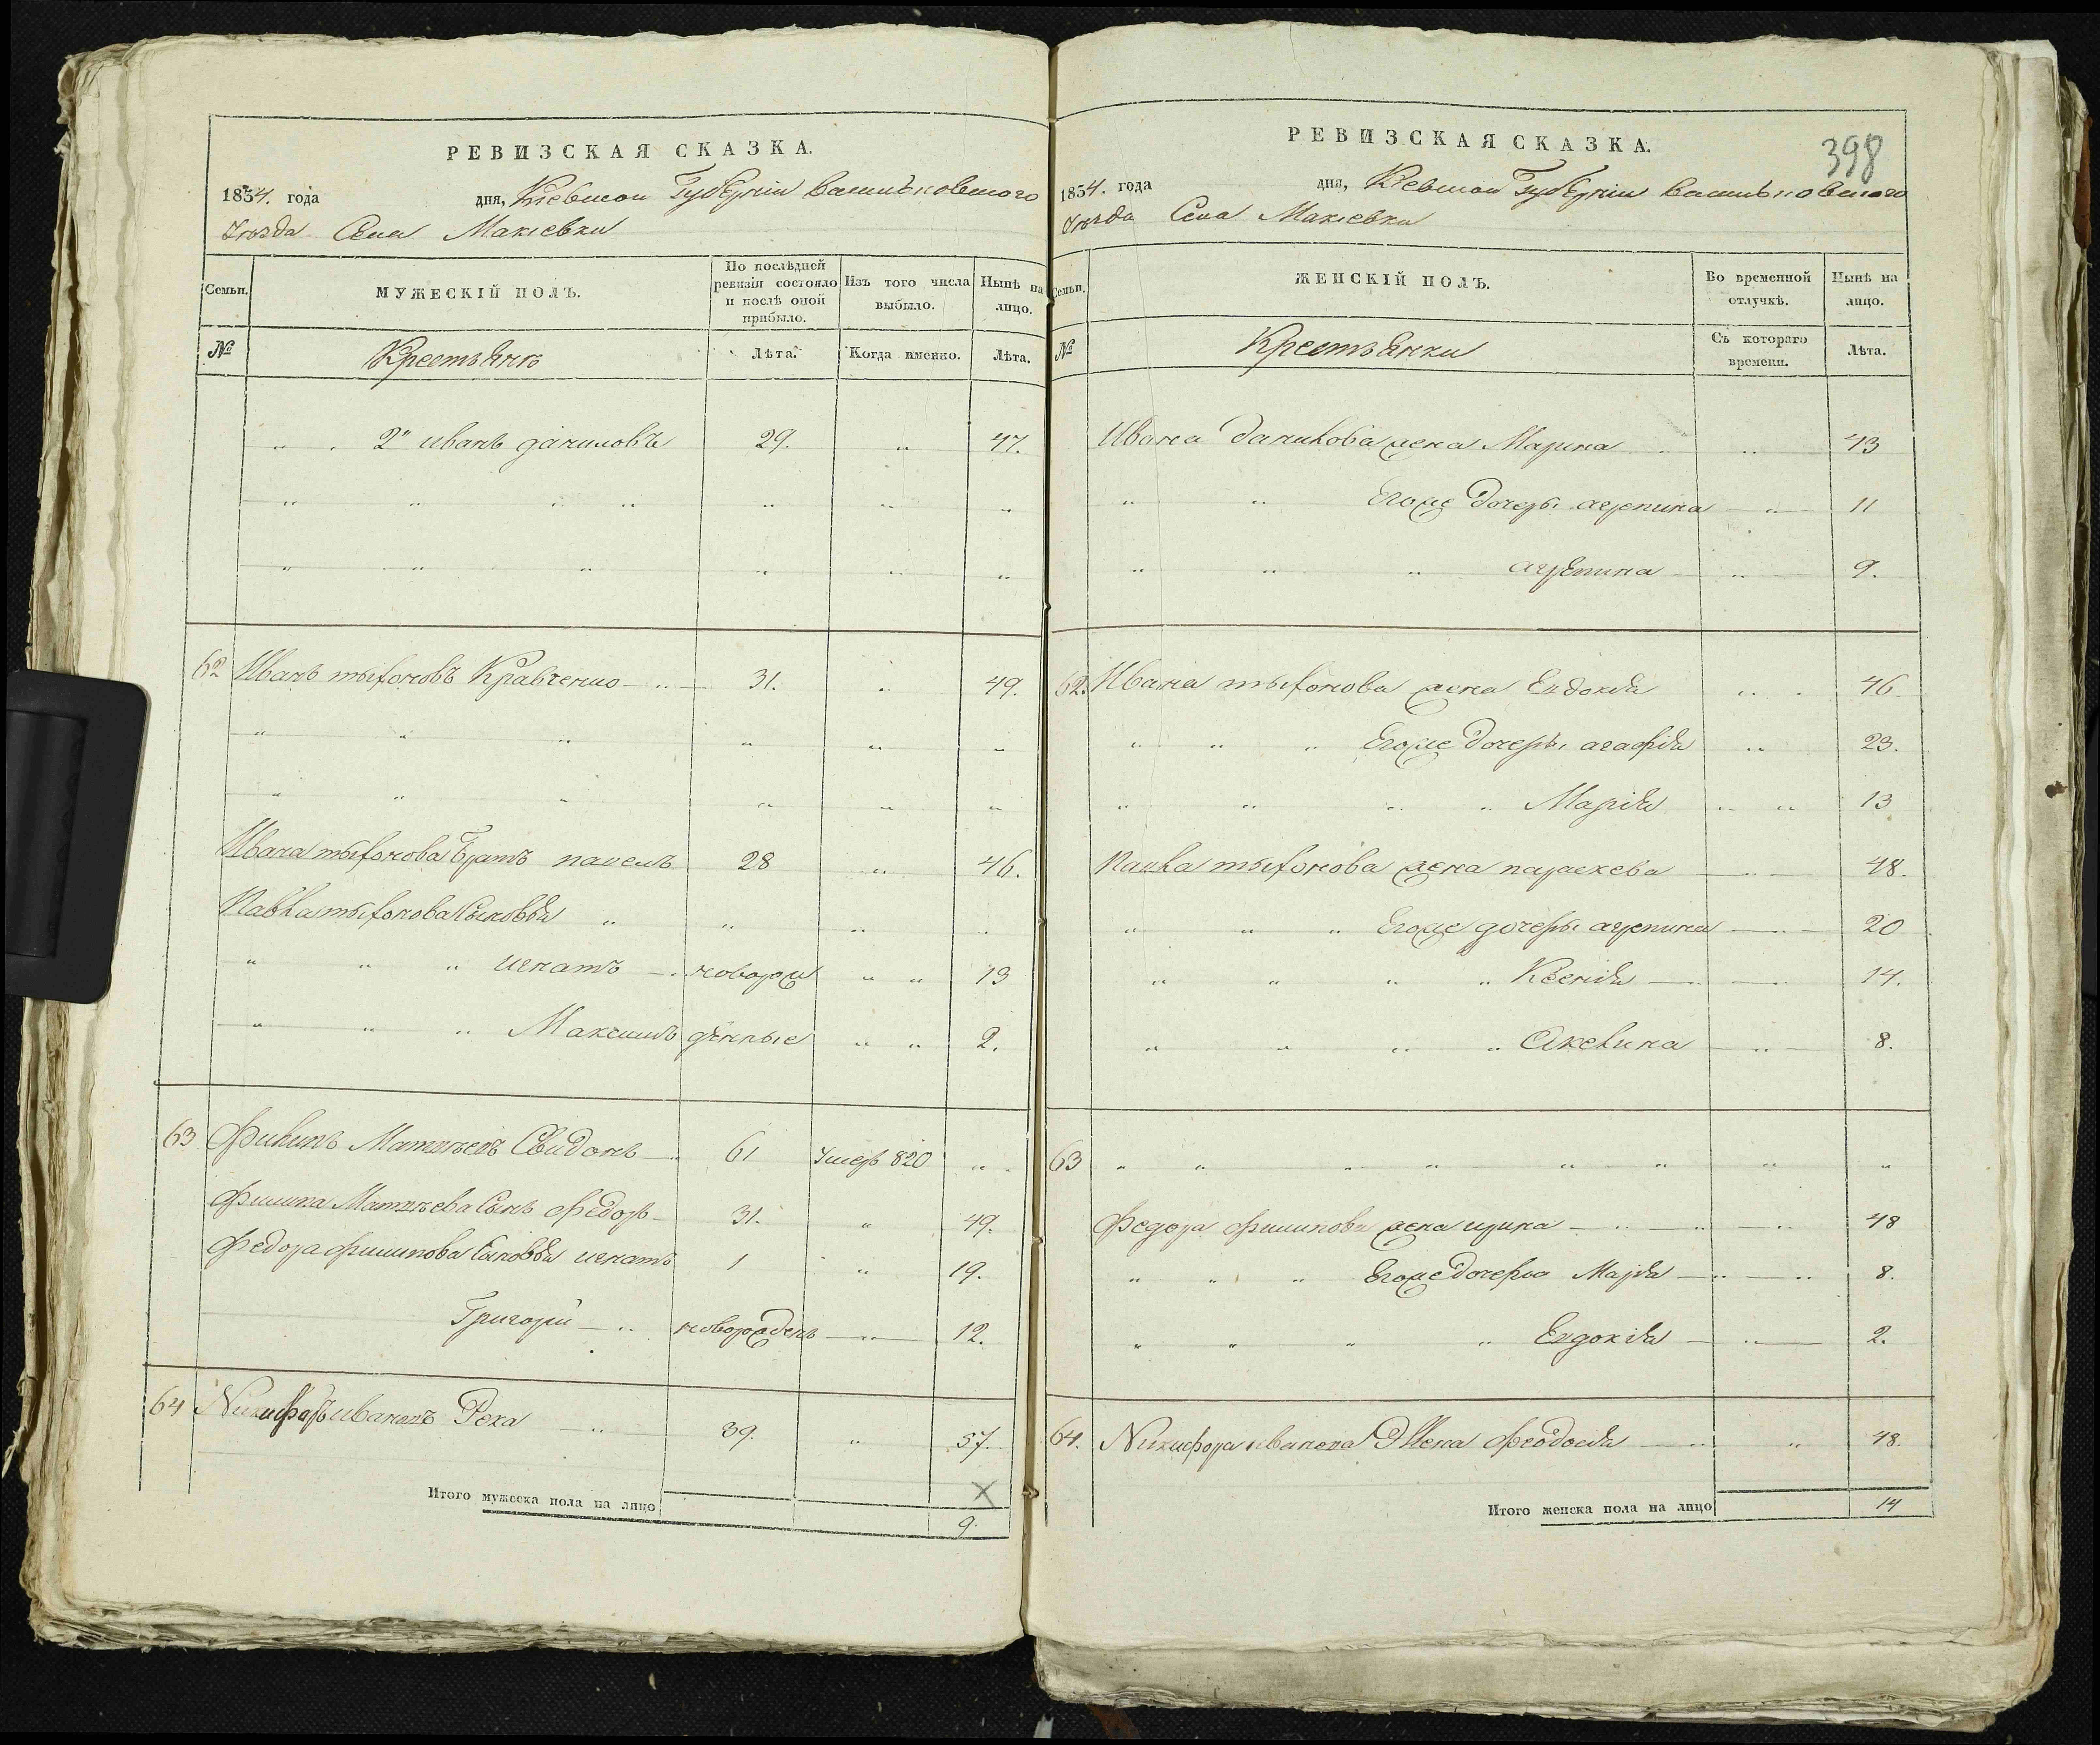 РЕВИЗСКАЯ СКАЗКА.
1834. года дня, Кіевской Губерніи Васильковского
Уезда Села Макіевки
Семьи. МУЖЕСКІЙ ПОЛЪ. По послѣдней ревизіи состояло и послѣ оной прибыло. Изъ того числа выбыло. Нынѣ на лицо.
№ Крестьянъ Лѣта. Когда именно. Лѣта.
" " 2й иванъ даниловъ 29. " 47.
" " " " " " "
" " " " " "
62 Иванъ тыхоновъ Кравченко 31. " 49.
" " " " " "
" " " " " "
Ивана тыхонова Братъ павелъ 28 " 46.
Павла тыхонова Сыновья " " " "
" " " игнатъ новорож " " 13
" " " Максимъ денные " " 2.
63 Филипъ Матвѣевъ Свидонъ 61 Умеръ 820 " "
Филипа Матвѣева Сынъ Федоръ 31. " 49.
Федора филипова Сыновья игнатъ 1 " 19.
Григорій новорожденъ " 12.
64 Никифоръ ивановъ Река 39. " 57.
Итого мужеска пола на лицо 9.
398
РЕВИЗСКАЯ СКАЗКА.
1834. года дня, Кіевской Губерніи Васильковского
Уезда Села Макіевки
Семьи. ЖЕНСКІЙ ПОЛЪ. Во временной отлучкѣ. Нынѣ на лицо.
№ Крестьянки Съ котораго времени. Лѣта.
Ивана данилова жена Марина " 43
" " Егоже дочеры агрепина " 11
" " " агрепина " 9.
62. Ивана тыхонова жена Евдокія " 46
" " " Егоже дочеры агафія " 23.
" " " " Марія " " 13
Павла тыхонова жена параскева " 48.
" " " Егоже дочеры агрепина " 20
" " " " Ксенія " 14.
" " " " Акелина " 8.
63 " " " " " " " "
Федора филипова жена ирина " 48
" " " Егоже дочеры Марія " 8.
" " " " Евдокія " 2.
64. Никифора иванова Жена феодосія " 48.
Итого женска пола на лицо 14